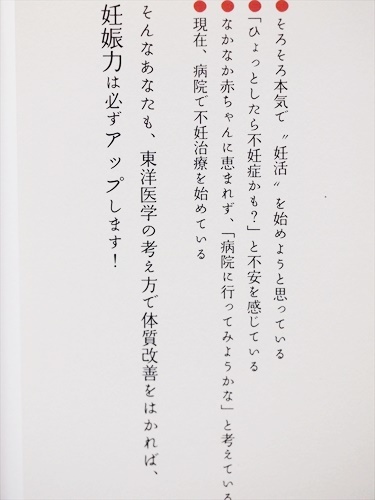 ●そろそろ本気で〝妊活〟を始めようと思っている
●「ひょっとしたら不妊症かも?」と不安を感じている
●なかなか赤ちゃんに恵まれず、「病院に行ってみようかな」と考えている
●現在、病院で不妊治療を始めている
そんなあなたも、東洋医学の考え方で体質改善をはかれば、
妊娠力は必ずアップします!